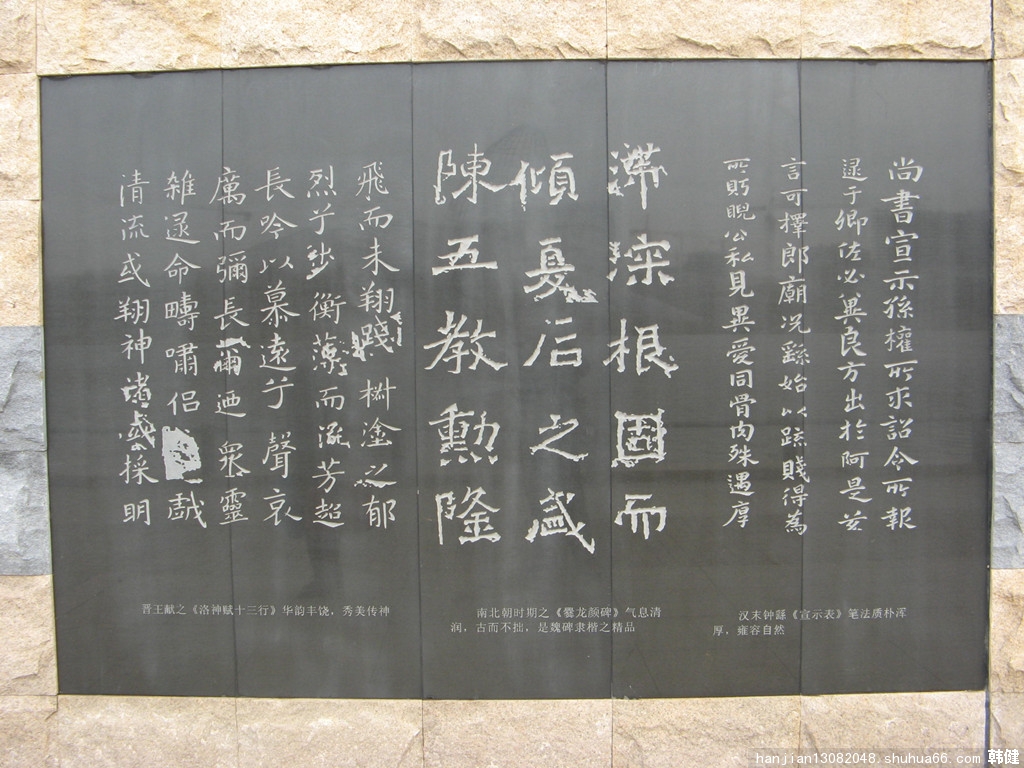 尚書宣示孫權所求詔令所報
逮于卿佐必異良方出於阿是芻
言可擇郎廟况繇始以踈賤得為
所眄睨公私見異愛同骨肉殊遇厚
滞深根固而
傾憂后之盛
陳五教勳隆
飛而未翔踐椒塗之郁
烈兮步衡薄而流芳超
長吟以慕遠兮聲哀
厲而彌長爾迺衆靈
雜遝命疇嘯侣戲
清流或翔神渚或採明
汉末钟繇《宣示表》笔法质朴浑
厚，雍容自然
南北朝时期之《爨龙颜碑》气息清
润，古而不拙，是魏碑隶楷之精品
晋王献之《洛神赋十三行》华韵丰饶，秀美传神
hanjian13082048.shuhua66.com 韩健